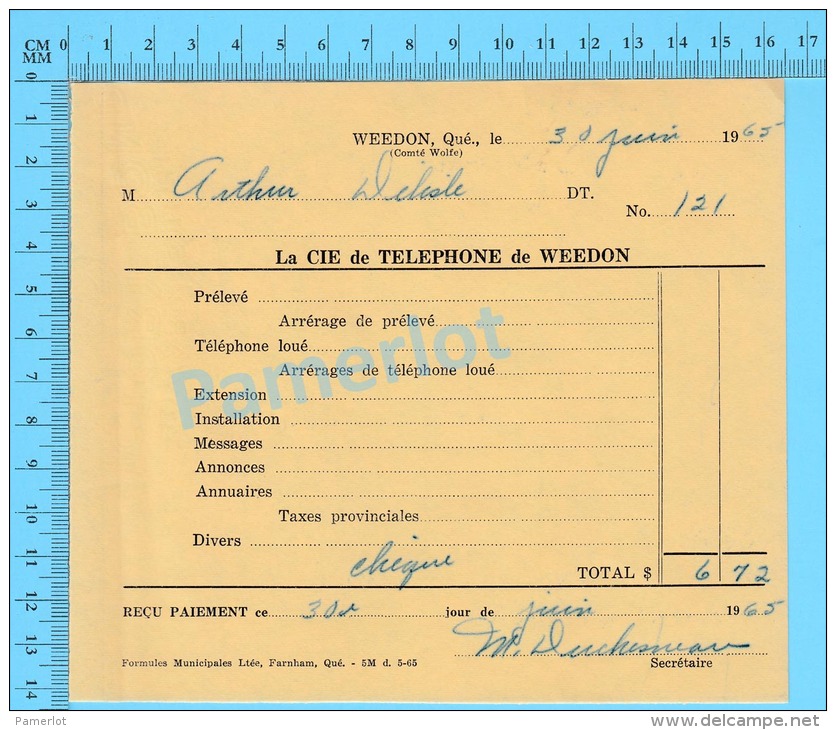 CM 0 1 2 3 4 5 6 7 8 9 10 11 12 13 14 15 16 17
MM
0 1 2 3 4 5 6 7 8 9 10 11 12 13 14
WEEDON, Qué., le 30 juin 1965
(Comté Wolfe)
M Arthur Delisle DT.
No. 121
La CIE de TELEPHONE de WEEDON
Prélevé
Arrérage de prélevé
Téléphone loué
Arrérages de téléphone loué
Pamerlot
Extension
Installation
Messages
Annonces
Annuaires
Taxes provinciales
Divers
chèque
TOTAL $ 6 72
REÇU PAIEMENT ce 30 jour de juin 1965
M. Duchesneau
Formules Municipales Ltée, Farnham, Qué. - 5M d. 5-65 Secrétaire
Pamerlot www.delcampe.net